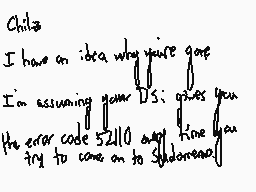 Chilz
I have an idea why you're gone
I'm assuming your DSi gives you
the error code 52110 every time you
try to come on to Sudomemo.